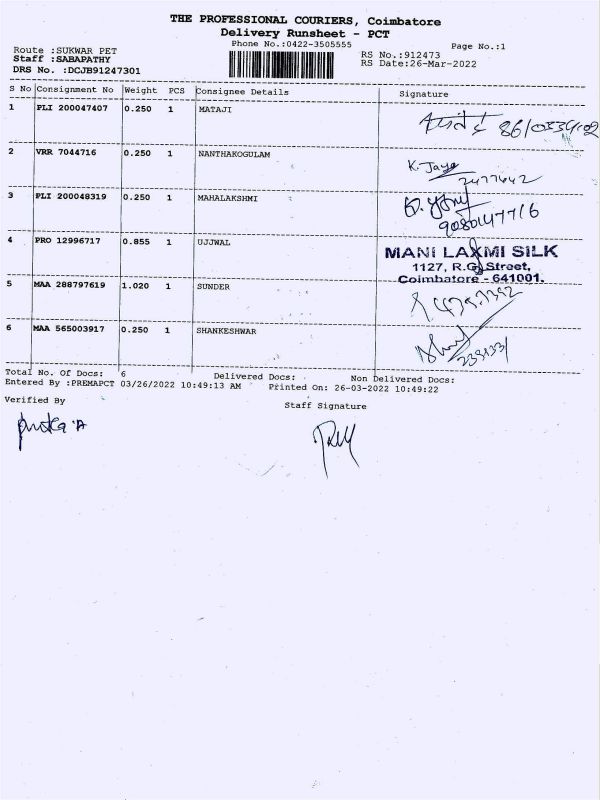 THE PROFESSIONAL COURIERS, Coimbatore
Delivery Runsheet - PCT
Phone No.:0422-3505555 Page No.:1
Route :SUKWAR PET RS No.:912473
Staff :SABAPATHY RS Date:26-Mar-2022
DRS No. :DCJB91247301
S No Consignment No Weight PCS Consignee Details Signature
1 PLI 200047407 0.250 1 MATAJI
2 VRR 7044716 0.250 1 NANTHAKOGULAM
K. Jaya
2477442
3 PLI 200048319 0.250 1 MAHALAKSHMI
9080147716
4 PRO 12996717 0.855 1 UJJWAL
MANI LAXMI SILK
1127, R.G. Street,
Coimbatore - 641001.
5 MAA 288797619 1.020 1 SUNDER
6 MAA 565003917 0.250 1 SHANKESHWAR
Total No. Of Docs: 6 Delivered Docs: Non Delivered Docs:
Entered By :PREMAPCT 03/26/2022 10:49:13 AM Printed On: 26-03-2022 10:49:22
Verified By Staff Signature